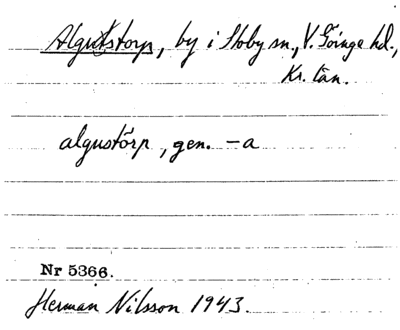 Algutstorp, by i Stoby sn., V. Göinge hd.,
Kr. län.
algustörp, gen. -a
Nr 5366.
Herman Nilsson 1943.